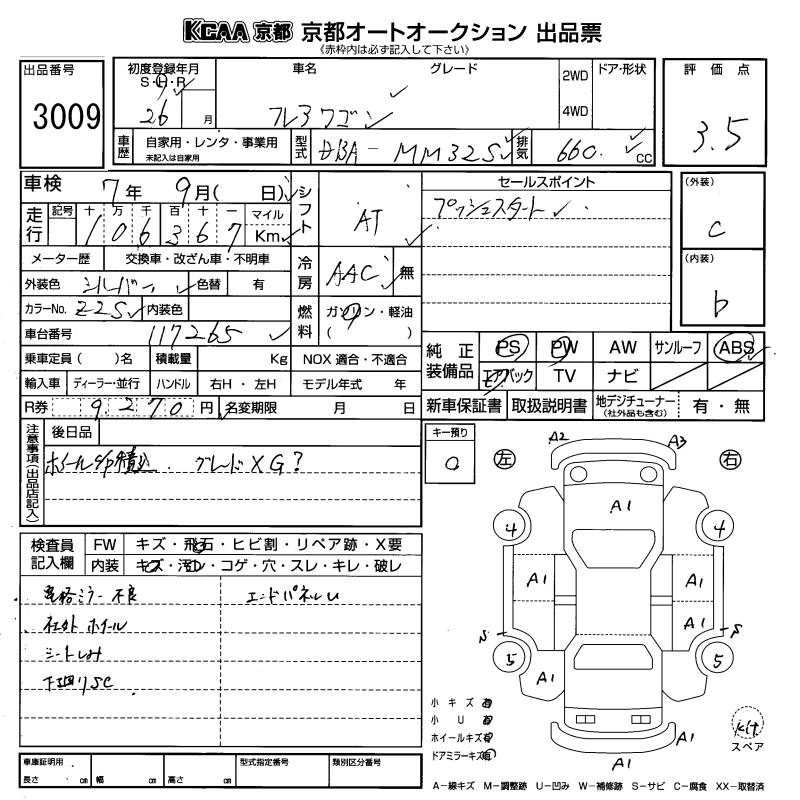 KCAA 京都 京都オートオークション 出品票
《赤枠内は必ず記入して下さい》
出品番号
3009
初度登録年月
S・H・R
26 月
車名 グレード
フレアワゴン
2WD
4WD
ドア・形状
評価点
3.5
車歴
自家用・レンタ・事業用
未記入は自家用
型式
DBA-MM32S
排気
660. CC
車検 7年 9月( 日)
シフト
AT
セールスポイント
プッシュスタート
(外装)
C
(内装)
b
走行
記号 十 万 千 百 十 一 マイル
1 0 6 3 6 7 Km
メーター歴 交換車・改ざん車・不明車
冷房
AAC 無
外装色 シルバー 色替 有
カラーNo. Z2S 内装色
燃料
ガソリン・軽油
( )
車台番号 117265
乗車定員( )名 積載量 Kg NOX 適合・不適合
輸入車 ディーラー・並行 ハンドル 右H・左H モデル年式 年
R券 9270円 名変期限 月 日
純正装備品
PS PW AW サンルーフ ABS
エアバック TV ナビ
新車保証書 取扱説明書 地デジチューナー(社外品も含む) 有・無
注意事項(出品店記入)
後日品
ホイールS/P積込. グレードXG?
キー預り
0
検査員記入欄
FW キズ・飛石・ヒビ割・リペア跡・X要
内装 キズ・汚レ・コゲ・穴・スレ・キレ・破レ
電格ミラー不良
社外ホイール
シートしみ
下廻りSC
エンドパネルU
左 右
A2 A3
A1
4 4
A1 A1
A1
S S
5 5
A1
A1
A1
小キズ有
小U有
ホイールキズ有
ドアミラーキズ有
kit
スペア
車庫証明用
長さ ・ cm 幅 cm 高さ cm
型式指定番号
類別区分番号
A−線キズ M−調整跡 U−凹み W−補修跡 S−サビ C−腐食 XX−取替済